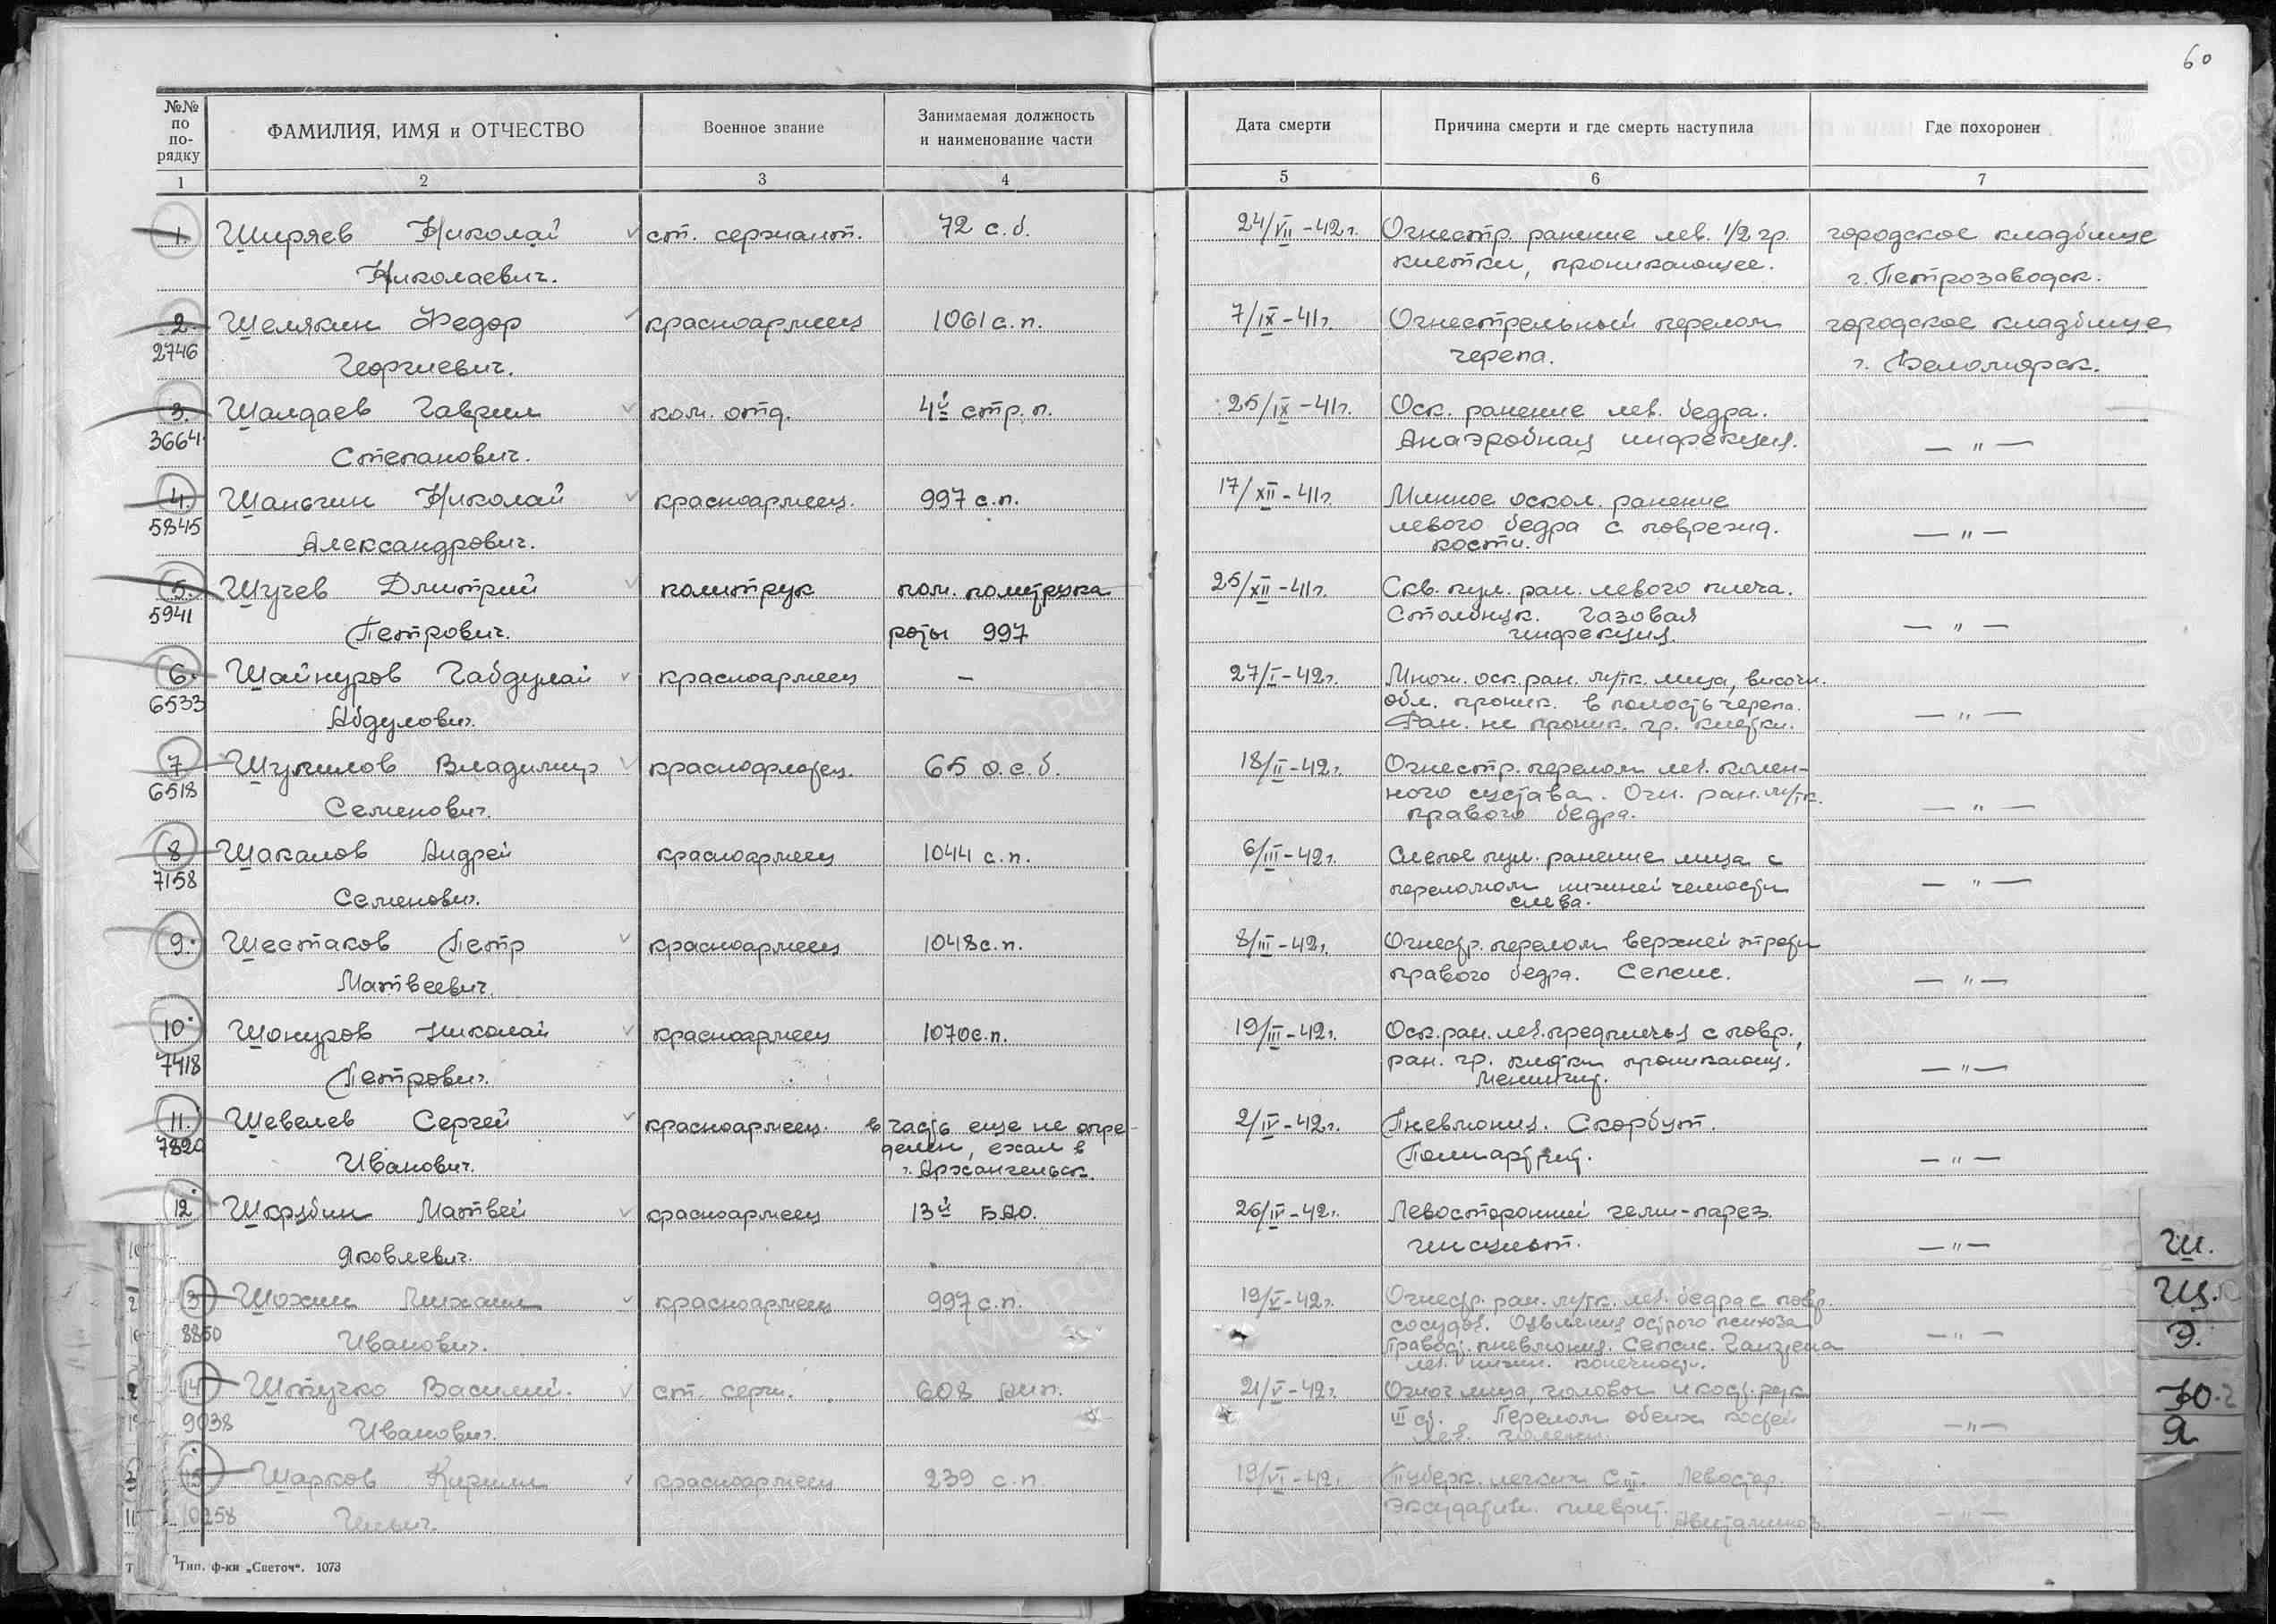 60
№№ по по- рядку
ФАМИЛИЯ, ИМЯ и ОТЧЕСТВО
Военное звание
Занимаемая должность и наименование части
Дата смерти
Причина смерти и где смерть наступила
Где похоронен
1 2 3 4 5 6 7
1. Ширяев Николай ст. сержант. 72 с.б. 24/VII-42г. Огнестр. ранение лев. 1/2 гр. городское кладбище
Николаевич. клетки, проникающее. г. Петрозаводск.
2. Шелякин Федор красноармеец 1061 с.п. 7/IX-41г. Огнестрельный перелом городское кладбище
2746 Георгиевич. черепа. г. Беломорск.
3. Шалдаев Гаврил ком. отд. 4й стр. п. 25/IX-41г. Оск. ранение лев. бедра.
3664 Степанович. Анаэробная инфекция. — " —
4. Шаньгин Николай красноармеец. 997 с.п. 17/XII-41г. Минное оскол. ранение
5845 Александрович. левого бедра с поврежд. — " —
кости.
5. Шучев Дмитрий политрук пом. политрука 25/XII-41г. Скв. пул. ран. левого плеча.
5941 Петрович. роты 997 Столбняк. Газовая — " —
инфекция.
6. Шайнуров Габдулай красноармеец — 27/I-42г. Множ. оск. ран. м/тк. лица, височн.
6533 Абдулович. обл. проник. в полость черепа. — " —
Ран. не проник. гр. клетки.
7 Шумилов Владимир краснофлотец. 65 о.с.б. 18/II-42г. Огнестр. перелом лев. колен-
6518 Семенович. ного сустава. Огн. ран. м/тк. — " —
правого бедра.
8 Шакалов Андрей красноармеец 1044 с.п. 6/III-42г. Слепое пул. ранение лица с
7158 Семенович. переломом нижней челюсти — " —
слева.
9. Шестаков Петр красноармеец 1048 с.п. 8/III-42г. Огнестр. перелом верхней трети
Матвеевич. правого бедра. Сепсис. — " —
10. Шонуров Николай красноармеец 1070 с.п. 19/III-42г. Оск. ран. лев. предплечья с повр.,
7418 Петрович. ран. гр. клетки проникающ. — " —
Менингит.
11. Шевелев Сергей красноармеец. в часть еще не опре- 2/IV-42г. Пневмония. Скорбут.
7820 Иванович. делен, ехал в Полиартрит. — " —
г. Архангельск.
12. Шкрубин Матвей красноармеец 13й БАО. 26/IV-42г. Левосторонний геми-парез.
Яковлевич. инсульт. — " —
13 Шохин Михаил красноармеец 997 с.п. 19/V-42г. Огнестр. ран. м/тк. лев. бедра с повр.
8850 Иванович. сосудов. Явления острого психоза — " —
Правост. пневмония. Сепсис. Гангрена
лев. нижн. конечности.
14 Штучко Василий. ст. серж. 608 21/V-42г. Ожог лица, головы и рук
9038 Иванович. III ст. Перелом обеих костей — " —
лев. голени.
15 Шарков Кирилл красноармеец 239 с.п. 19/VI-42г. Туберк. легких СIII. Левостор.
10258 Ильич. Экссудативн. плеврит. Авитаминоз. — " —
Ш.
Щ.
Э.
Ю.
Я
Тип. ф-ки „Светоч". 1073